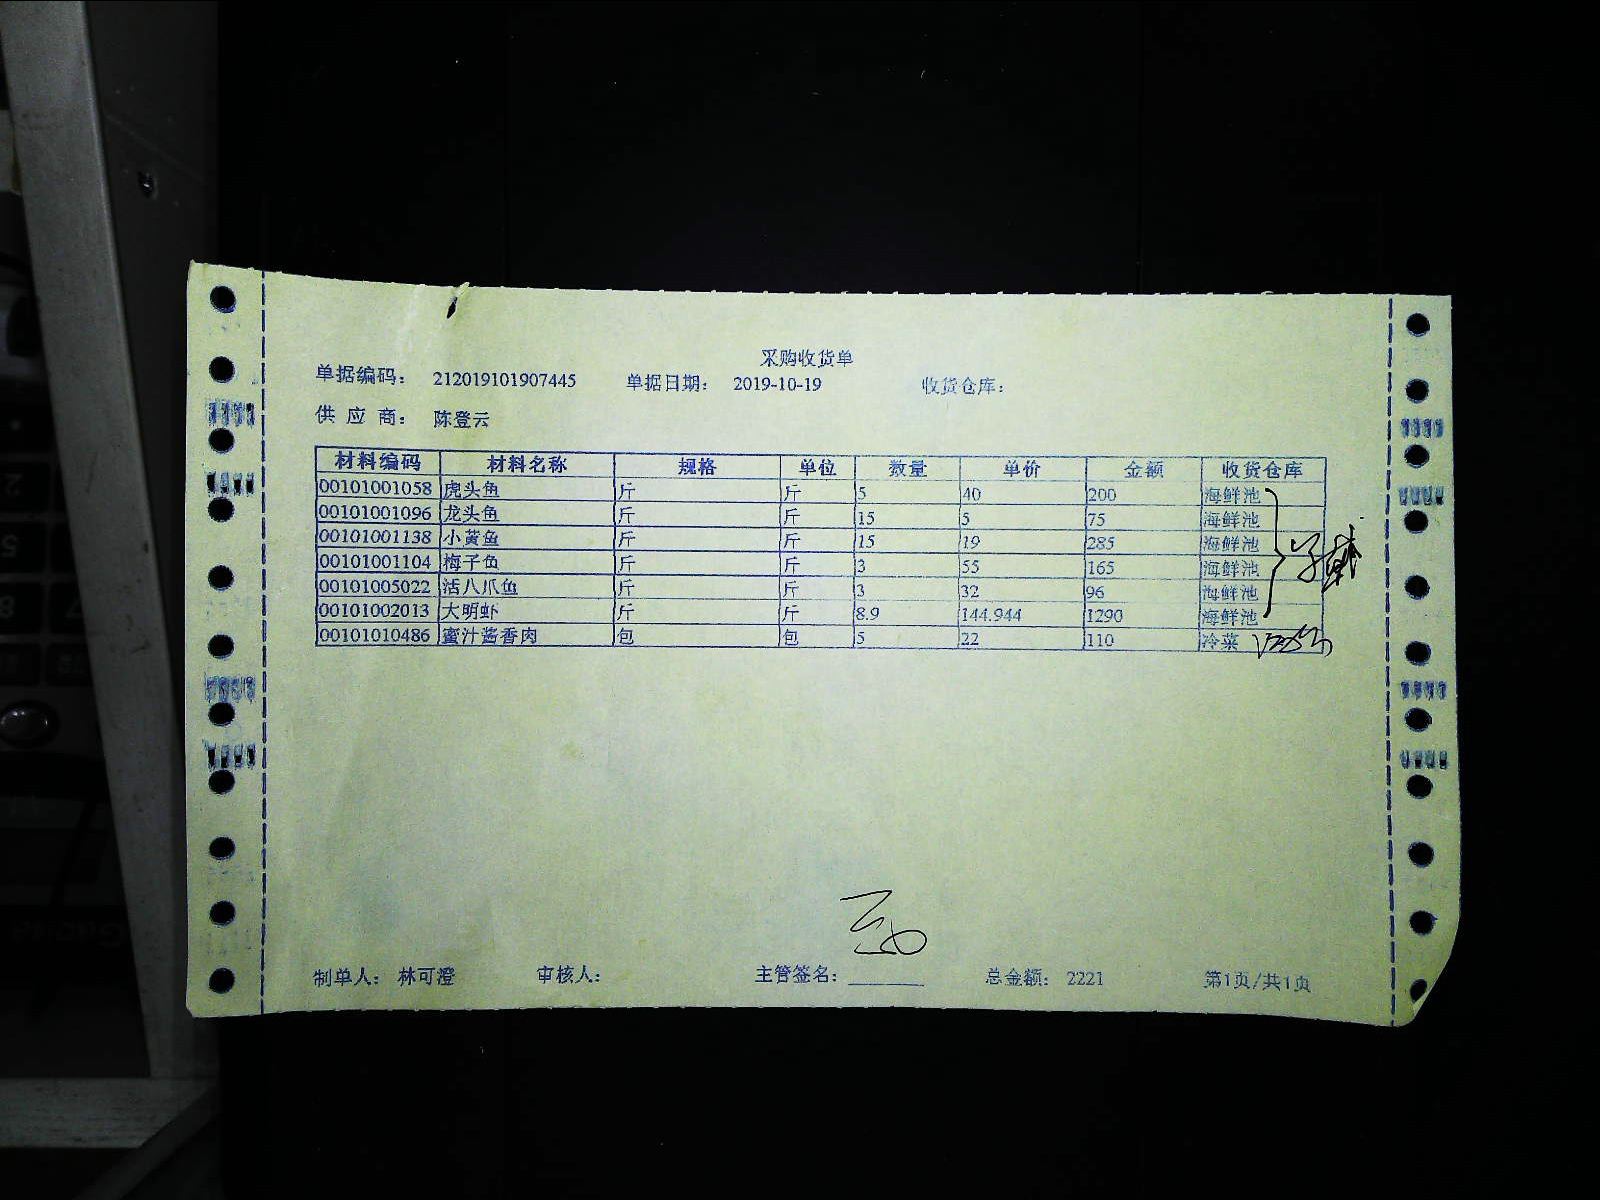 采购收货单
单据编码： 212019101907445 单据日期： 2019-10-19 收货仓库：
供 应 商： 陈登云
材料编码 材料名称 规格 单位 数量 单价 金额 收货仓库
00101001058 虎头鱼 斤 斤 5 40 200 海鲜池
00101001096 龙头鱼 斤 斤 15 5 75 海鲜池
00101001138 小黄鱼 斤 斤 15 19 285 海鲜池
00101001104 梅子鱼 斤 斤 3 55 165 海鲜池
00101005022 活八爪鱼 斤 斤 3 32 96 海鲜池
00101002013 大明虾 斤 斤 8.9 144.944 1290 海鲜池
00101010486 蜜汁酱香肉 包 包 5 22 110 冷菜
制单人： 林可澄 审核人： 主管签名： 总金额： 2221 第1页/共1页